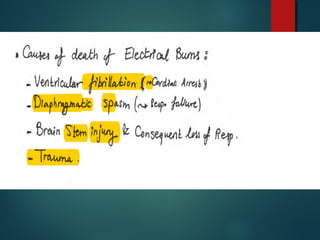 • Causes of death of Electrical Burns :
- Ventricular fibrillation (→ Cardiac Arrest)
- Diaphragmatic spasm (→ Resp. failure)
- Brain Stem injury & Consequent loss of Resp.
- Trauma.